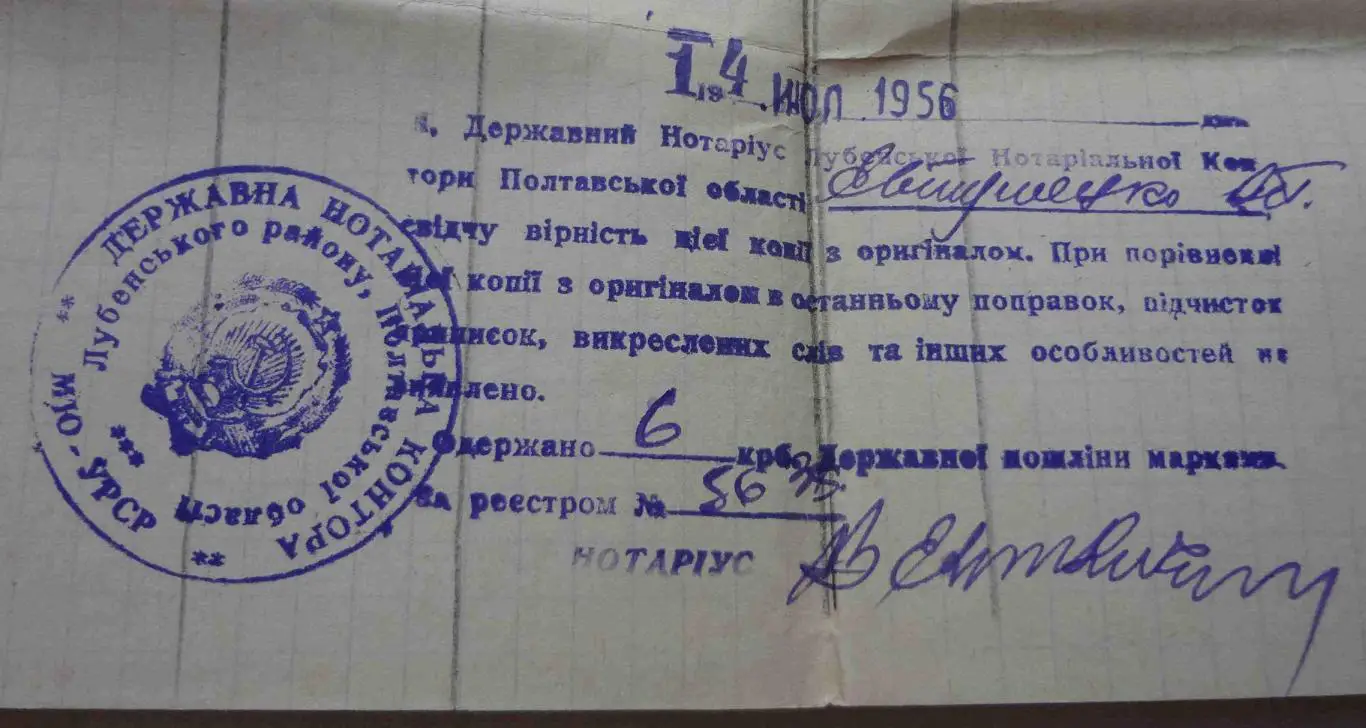 14 ИЮЛ 1956
Я, Державний Нотаріус Лубенської Нотаріальної Кон
тори Полтавської області
свідчу вірність цієї копії з оригіналом. При порівненні
копії з оригіналом в останньому поправок, підчисток
приписок, викреслених слів та інших особливостей не
виявлено.
Одержано 6 крб. Державної пошліни марками.
За реестром №
НОТАРІУС
ДЕРЖАВНА НОТАРІАЛЬНА КОНТОРА
Лубенського району, Полтавської області
МЮ-УРСР